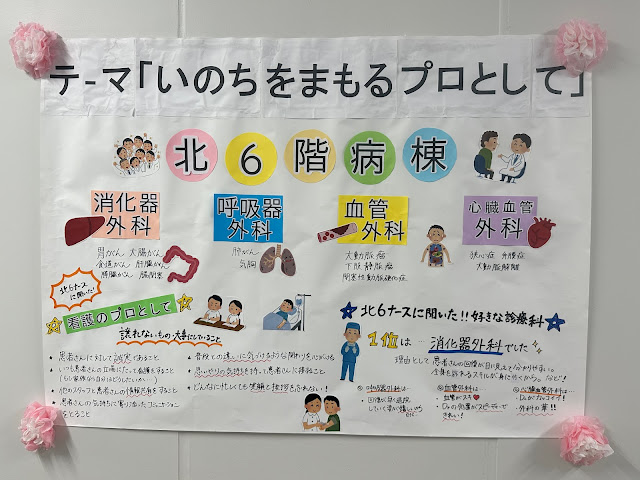 テーマ「いのちをまもるプロとして」
北6階病棟
消化器
外科
胃がん 大腸がん
食道がん 肝臓がん
膵臓がん 腸閉塞
呼吸器
外科
肺がん
気胸
血管
外科
大動脈瘤
下肢静脈瘤
閉塞性動脈硬化症
心臓血管
外科
狭心症 弁膜症
大動脈解離
北6ナースに聞いた!
看護のプロとして
譲れないもの・大事にしていること
・患者さんに対して誠実であること
・いつも患者さんの立場にたって看護をすること
(もし家族なら自分はどうしたいか…)
・他のスタッフと患者さんの情報共有をすること
・患者さんの気持ちに寄りそったコミュニケーション
をとること
・普段との違いに気付けるような関わりを心がける
・思いやりの気持ちを持って患者さんに接すること
・どんなに忙しくても笑顔と挨拶を忘れない!
北6ナースに聞いた!!好きな診療科
1位は…消化器外科でした
理由として 患者さんの回復が目に見えて分かりやすい。
全身を診れるスキルが身に付くから。などど
②呼吸器外科は…
・回復が早く退院
していく姿が嬉しいから
③血管外科は…
・血管がスキ
・Drの処置がスピーディーで
きれい!
④心臓血管外科は…
・Drがカッコイイ!
・外科の華!!